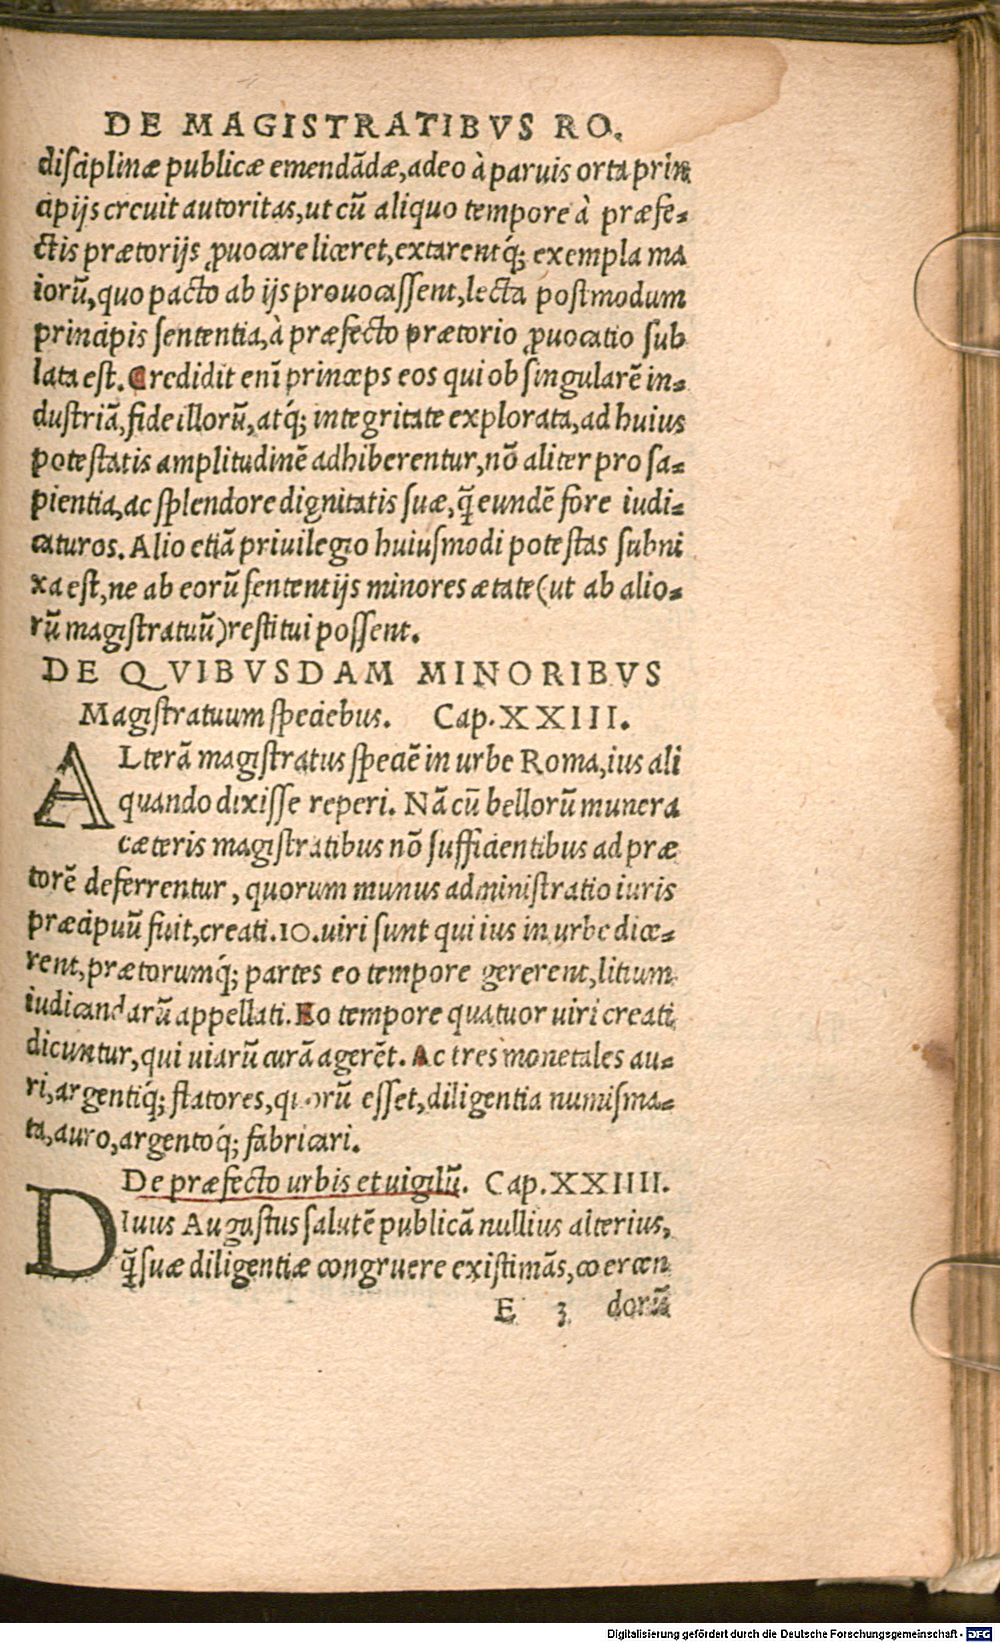 DE MAGISTRATIBVS RO.
disciplinæ publicæ emendãdæ, adeo à paruis orta prin
cipijs crcuit autoritas, ut cũ aliquo tempore à præfe-
ctis prætorijs ꝓuocare liceret, extarentq́; exempla ma
iorũ, quo pacto ab ijs prouocassent, lecta postmodum
principis sententia, à præfecto prætorio ꝓuocatio sub
lata est. Credidit enĩ princeps eos qui ob singularẽ in-
dustriã, fide illorũ, atq́; integritate explorata, ad huius
potestatis amplitudinẽ adhiberentur, nõ aliter pro sa-
pientia, ac splendore dignitatis suæ, q̃ eundẽ fore iudi-
caturos. Alio etiã priuilegio huiusmodi potestas subni
xa est, ne ab eorũ sententijs minores ætate (ut ab alio-
rũ magistratuũ) restitui possent.
DE QVIBVSDAM MINORIBVS
Magistratuum speciebus. Cap. XXIII.
ALterã magistratus speciẽ in urbe Roma, ius ali
quando dixisse reperi. Nã cũ bellorũ munera
cæteris magistratibus nõ sufficientibus ad præ
torẽ deferrentur, quorum munus administratio iuris
præcipuũ fuit, creati. 10. uiri sunt qui ius in urbe dice-
rent, prætorumq́; partes eo tempore gererent, litium
iudicandarũ appellati. Eo tempore quatuor uiri creati
dicuntur, qui uiarũ curã agerẽt. Ac tres monetales au-
ri, argentiq́; flatores, quorũ esset, diligentia numisma-
ta, auro, argentoq́; fabricari.
De præfecto urbis et uigilũ. Cap. XXIIII.
DIuus Augustus salutẽ publicã nullius alterius,
q̃ suæ diligentiæ congruere existimãs, coercen
E 3 dorũ
Digitalisierung gefördert durch die Deutsche Forschungsgemeinschaft - DFG